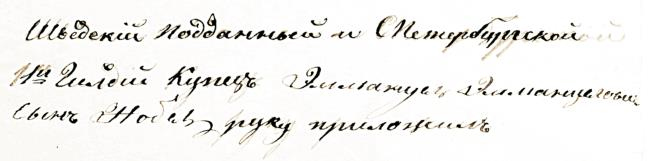 Шведскій подданный и С Петербургской
1й Гилдіи Купецъ Эммануел Эммануелевъ
Сынъ Нобел руку приложилъ